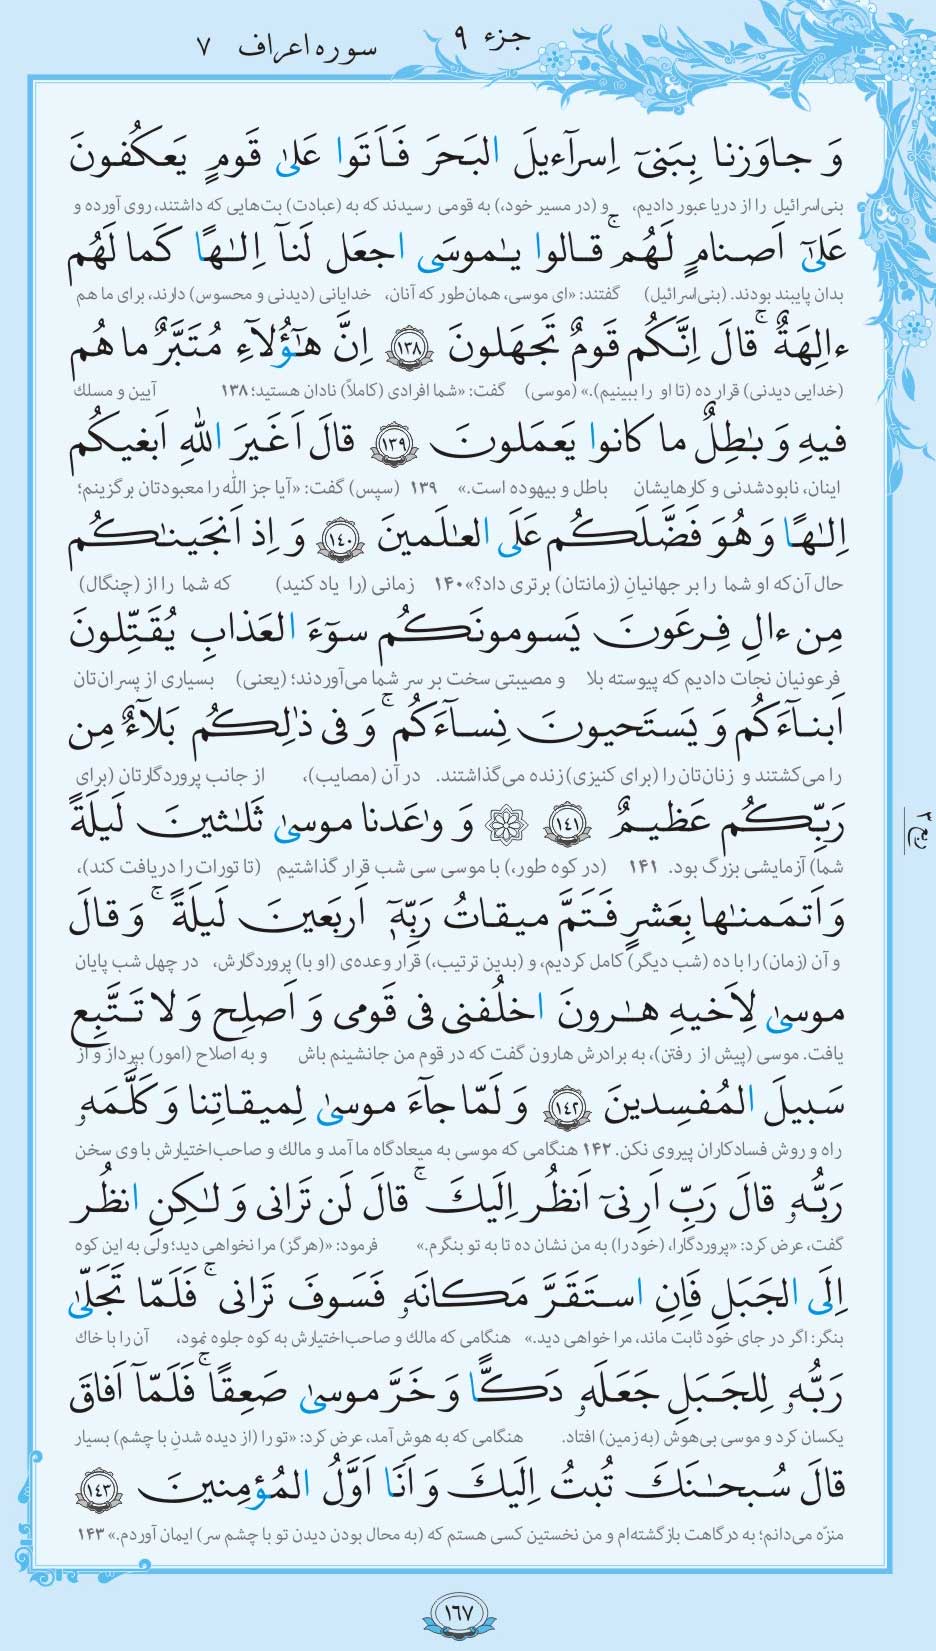 جزء ۹
سوره اعراف ۷
وَ جاوَزنا بِبَنىٓ اِسرآءيلَ البَحرَ فَاَتَوا عَلىٰ قَومٍ يَعكُفونَ
بنی‌اسرائیل را از دریا عبور دادیم، و (در مسیر خود،) به قومی رسیدند که به (عبادت) بت‌هایی که داشتند، روی آورده و
عَلىٰٓ اَصنامٍ لَهُم ۚ قالوا يٰموسَى اجعَل لَنآ اِلٰهًا كَما لَهُم
بدان پایبند بودند. (بنی‌اسرائیل) گفتند: «ای موسی، همان‌طور که آنان، خدایانی (دیدنی و محسوس) دارند، برای ما هم
ءالِهَةٌ ۚ قالَ اِنَّكُم قَومٌ تَجهَلونَ ﴿١٣٨﴾ اِنَّ هٰٓؤُلآءِ مُتَبَّرٌ ما هُم
(خدایی دیدنی) قرار ده (تا او را ببینیم).» (موسی) گفت: «شما افرادی (کاملاً) نادان هستید؛ ۱۳۸ آیین و مسلك
فيهِ وَ بٰطِلٌ ما كانوا يَعمَلونَ ﴿١٣٩﴾ قالَ اَغَيرَ اللّٰهِ اَبغيكُم
اینان، نابودشدنی و کارهایشان باطل و بیهوده است.» ۱۳۹ (سپس) گفت: «آیا جز اللّه را معبودتان برگزینم؛
اِلٰهًا وَ هُوَ فَضَّلَكُم عَلَى العٰلَمينَ ﴿١٤٠﴾ وَ اِذ اَنجَينٰكُم
حال آن‌که او شما را بر جهانیانِ (زمانتان) برتری داد؟» ۱۴۰ زمانی (را یاد کنید) که شما را از (چنگال)
مِن ءالِ فِرعَونَ يَسومونَكُم سوٓءَ العَذابِ يُقَتِّلونَ
فرعونیان نجات دادیم که پیوسته بلا و مصیبتی سخت بر سر شما می‌آوردند؛ (یعنی) بسیاری از پسران‌تان
اَبنآءَكُم وَ يَستَحيونَ نِسآءَكُم ۚ وَ فى ذٰلِكُم بَلآءٌ مِن
را می‌کشتند و زنان‌تان را (برای کنیزی) زنده می‌گذاشتند. در آن (مصایب)، از جانب پروردگارتان (برای
رَبِّكُم عَظيمٌ ﴿١٤١﴾ ۞ وَ وٰعَدنا موسىٰ ثَلٰثينَ لَيلَةً
شما) آزمایشی بزرگ بود. ۱۴۱ (در کوه طور،) با موسی سی شب قرار گذاشتیم (تا تورات را دریافت کند)،
ربع ۲
وَ اَتمَمنٰها بِعَشرٍ فَتَمَّ ميقاتُ رَبِّهٖٓ اَربَعينَ لَيلَةً ۚ وَ قالَ
و آن (زمان) را با ده (شب دیگر) کامل کردیم، و (بدین ترتیب،) قرار وعده‌ی (او با) پروردگارش، در چهل شب پایان
موسىٰ لِاَخيهِ هٰرونَ اخلُفنى فى قَومى وَ اَصلِح وَ لا تَتَّبِع
یافت. موسی (پیش از رفتن)، به برادرش هارون گفت که در قوم من جانشینم باش و به اصلاح (امور) بپرداز و از
سَبيلَ المُفسِدينَ ﴿١٤٢﴾ وَ لَمّا جآءَ موسىٰ لِميقاتِنا وَ كَلَّمَهٗ
راه و روش فسادکاران پیروی نکن. ۱۴۲ هنگامی که موسی به میعادگاه ما آمد و مالك و صاحب‌اختیارش با وی سخن
رَبُّهٗ قالَ رَبِّ اَرِنىٓ اَنظُر اِلَيكَ ۚ قالَ لَن تَرانى وَ لٰكِنِ انظُر
گفت، عرض کرد: «پروردگارا، (خود را) به من نشان ده تا به تو بنگرم.» فرمود: «(هرگز) مرا نخواهی دید؛ ولی به این کوه
اِلَى الجَبَلِ فَاِنِ استَقَرَّ مَكانَهٗ فَسَوفَ تَرانى ۚ فَلَمّا تَجَلّىٰ
بنگر: اگر در جای خود ثابت ماند، مرا خواهی دید.» هنگامی که مالك و صاحب‌اختیارش به کوه جلوه نمود، آن را با خاك
رَبُّهٗ لِلجَبَلِ جَعَلَهٗ دَكًّا وَ خَرَّ موسىٰ صَعِقًا ۚ فَلَمّآ اَفاقَ
یکسان کرد و موسی بی‌هوش (به زمین) افتاد. هنگامی که به هوش آمد، عرض کرد: «تو را (از دیده شدنِ با چشم) بسیار
قالَ سُبحٰنَكَ تُبتُ اِلَيكَ وَ اَنَا اَوَّلُ المُؤمِنينَ ﴿١٤٣﴾
منزّه می‌دانم؛ به درگاهت بازگشته‌ام و من نخستین کسی هستم که (به محال بودن دیدن تو با چشم سر) ایمان آوردم.» ۱۴۳
۱۶۷